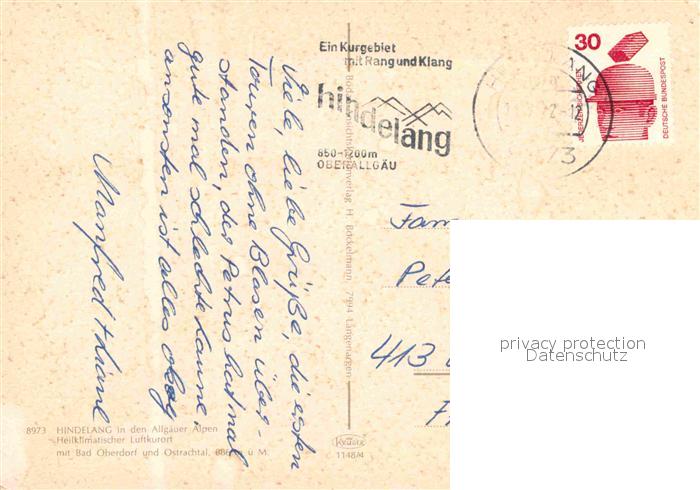 Ein Kurgebiet
mit Rang und Klang
hindelang
850-1200m
OBERALLGÄU
30
JEDERZEIT SICHERHEIT
DEUTSCHE BUNDESPOST
Viele, liebe Grüße, die ersten
Touren ohne Blasen über-
standen, des Petrus hat mal
gute mal schlechte Laune,
ansonsten ist alles okay
Manfred + Liane
Fam
Pete
413
F
privacy protection
Datenschutz
H. Böckelmann, 7994 Langenargen
8973 HINDELANG in den Allgäuer Alpen
Heilklimatischer Luftkurort
mit Bad Oberdorf und Ostrachtal, 886 m ü. M.
1148/4